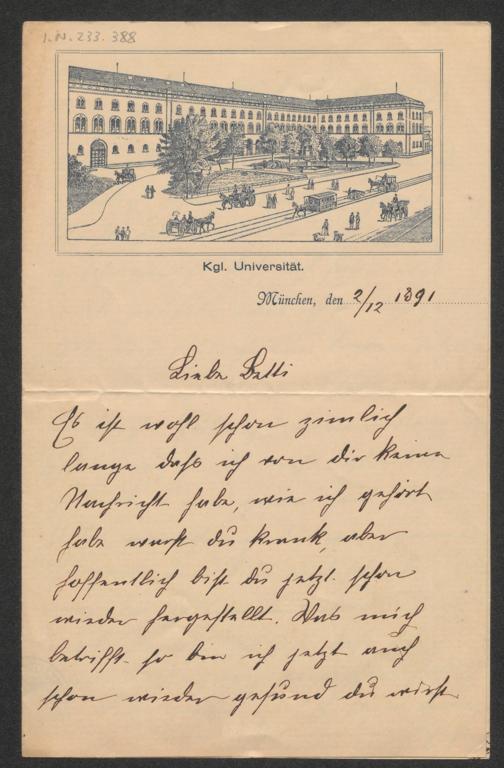 I.N. 233.388
Kgl. Universität.
München, den 2/12 1891
Liebe Betti
Es ist wohl schon zimlich
lange daß ich von dir keine
Nachricht habe, wie ich gehört
habe warst du krank, aber
hoffentlich bist du jetzt schon
wieder hergestellt. Was mich
betrifft so bin ich jetzt auch
schon wieder gesund du wirst